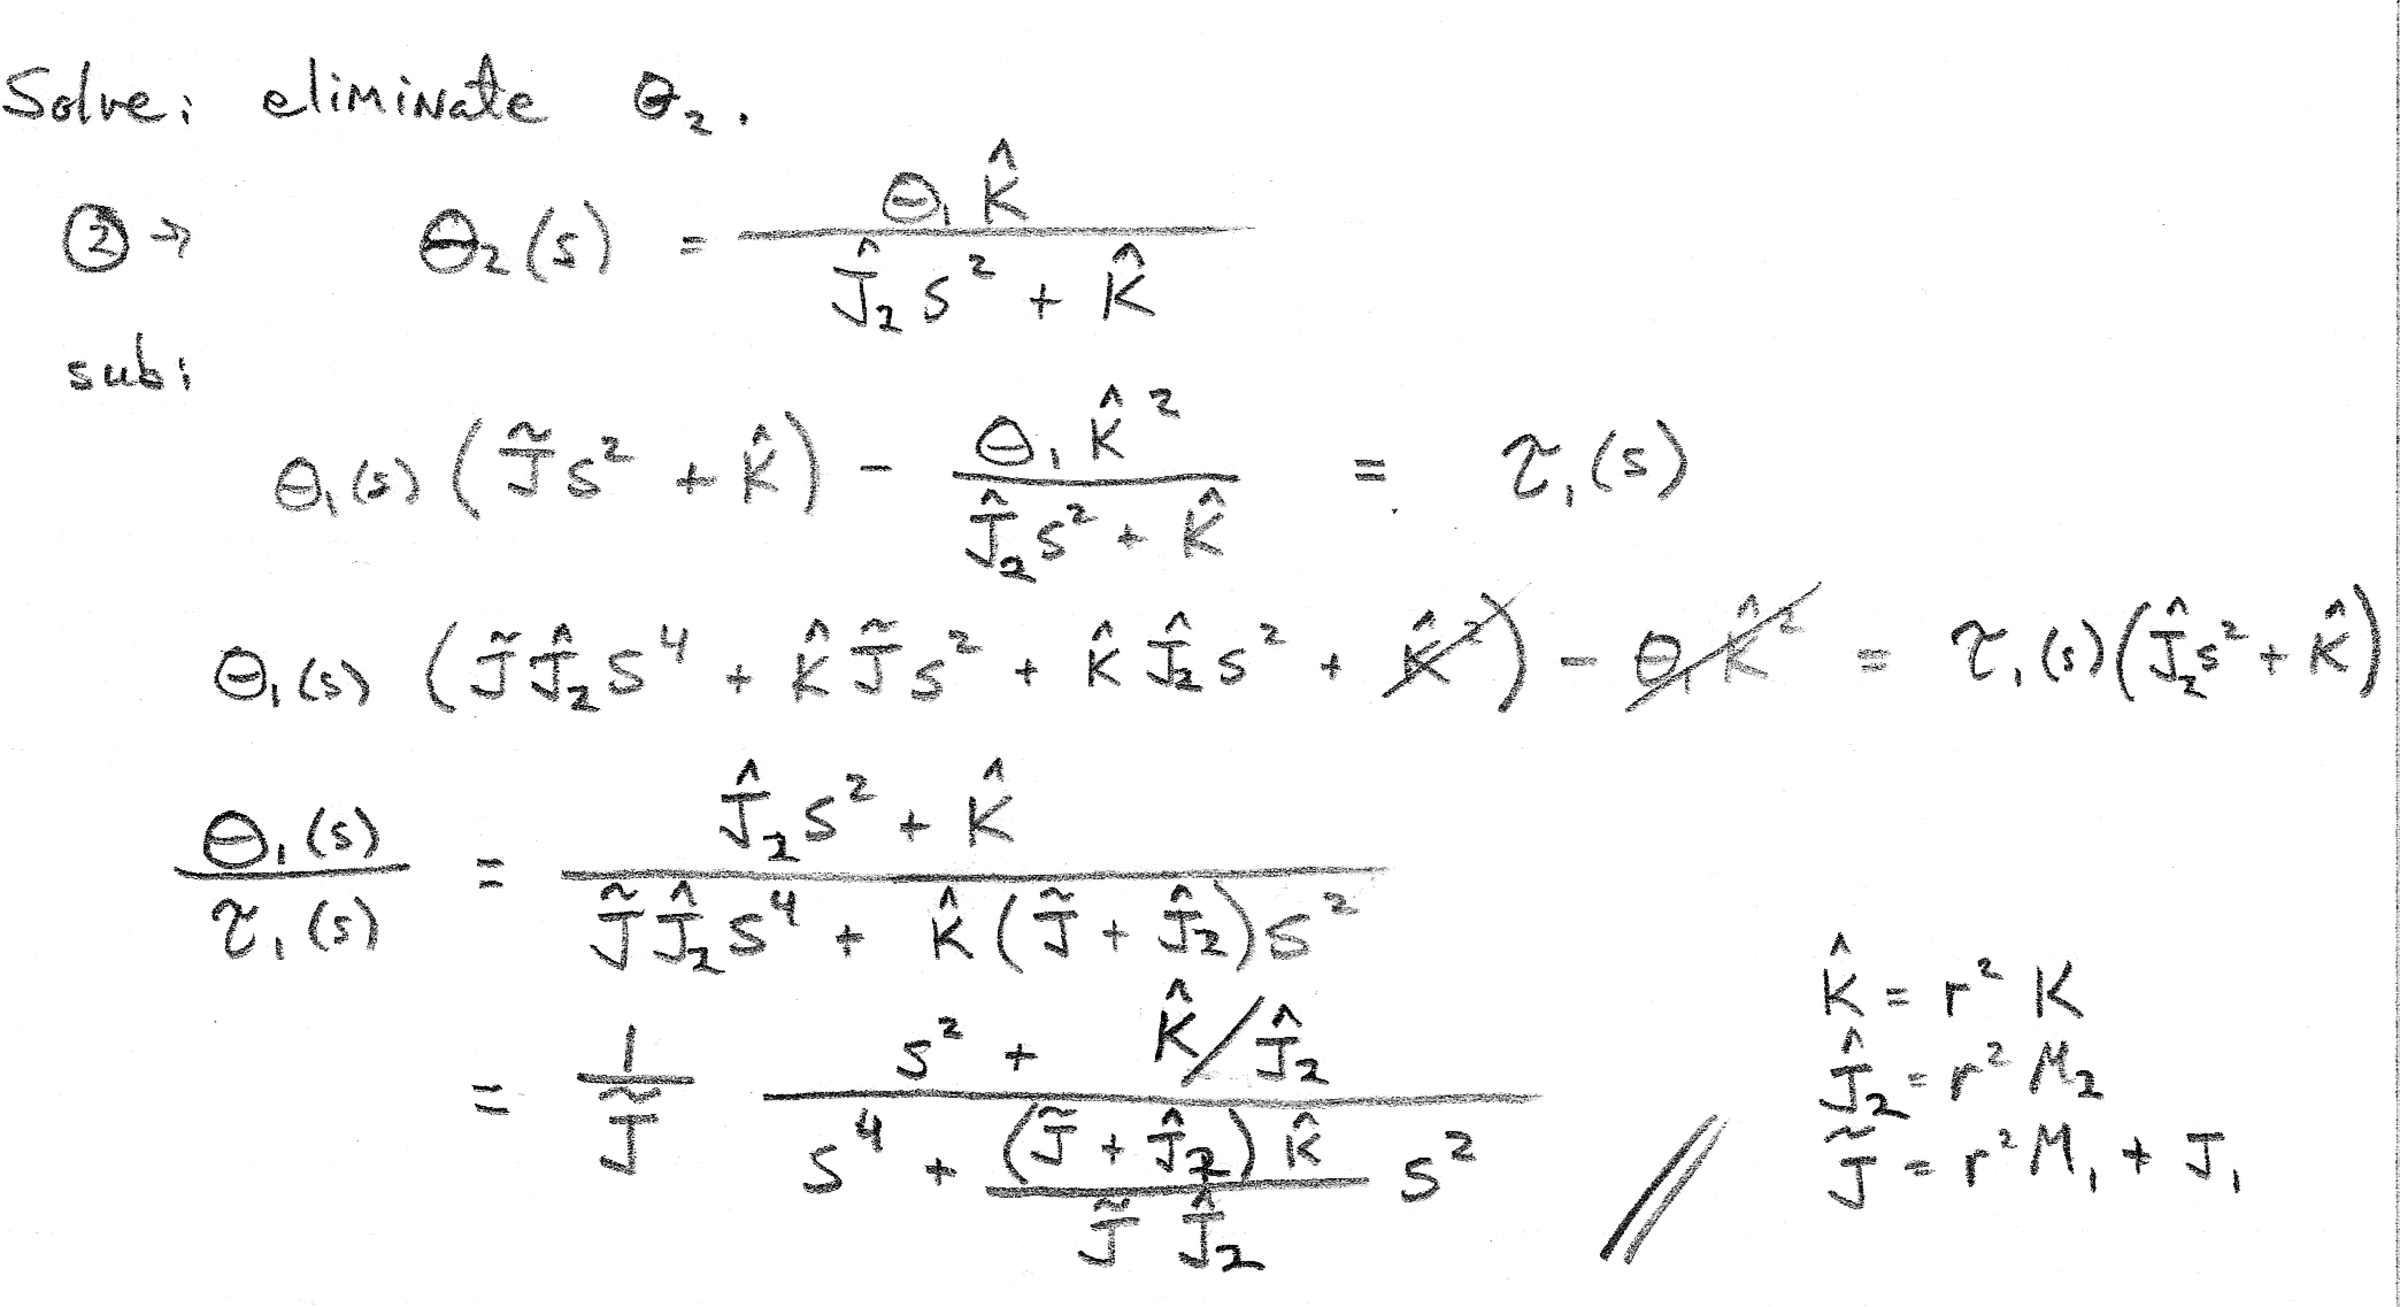 Solve: eliminate θ₂.
② → Θ₂(s) = Θ₁ K̂ / (Ĵ₂ s² + K̂)
sub:
Θ₁(s) (J̃ s² + K̂) − Θ₁ K̂² / (Ĵ₂ s² + K̂) = τ₁(s)
Θ₁(s) (J̃ Ĵ₂ s⁴ + K̂ J̃ s² + K̂ Ĵ₂ s² + K̂²) − Θ₁ K̂² = τ₁(s) (Ĵ₂ s² + K̂)
Θ₁(s) / τ₁(s) = (Ĵ₂ s² + K̂) / (J̃ Ĵ₂ s⁴ + K̂ (J̃ + Ĵ₂) s²)
= 1/J̃ (s² + K̂/Ĵ₂) / (s⁴ + ((J̃ + Ĵ₂) K̂ / (J̃ Ĵ₂)) s²) //
K̂ = r² K
Ĵ₂ = r² M₂
J̃ = r² M₁ + J₁